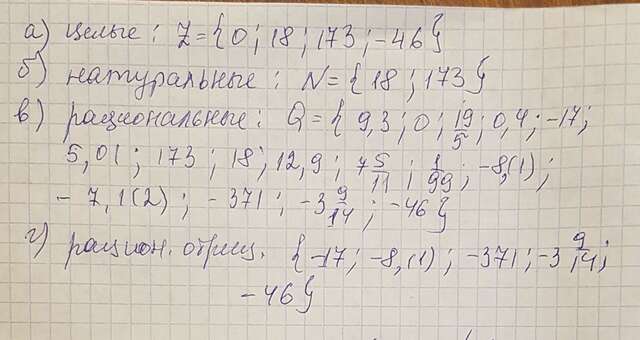 а) целые: Z = {0; 18; 173; -46}
б) натуральные: N = {18; 173}
в) рациональные: Q = {9,3; 0; 19/5; 0,4; -17;
5,01; 173; 18; 12,9; 7 5/11; 1/99; -8,(1);
-7,1(2); -371; -3 9/14; -46}
г) рацион. отриц. {-17; -8,(1); -371; -3 9/14;
-46}